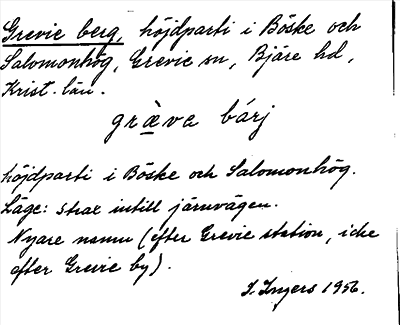 Grevie berg, höjdparti i Böske och
Salomonhög, Grevie sn, Bjäre hd,
Krist. län.
græ̀va bárj
höjdparti i Böske och Salomonhög.
Läge: strax intill järnvägen.
Nyare namn (efter Grevie station, icke
efter Grevie by).
I. Ingers 1956.